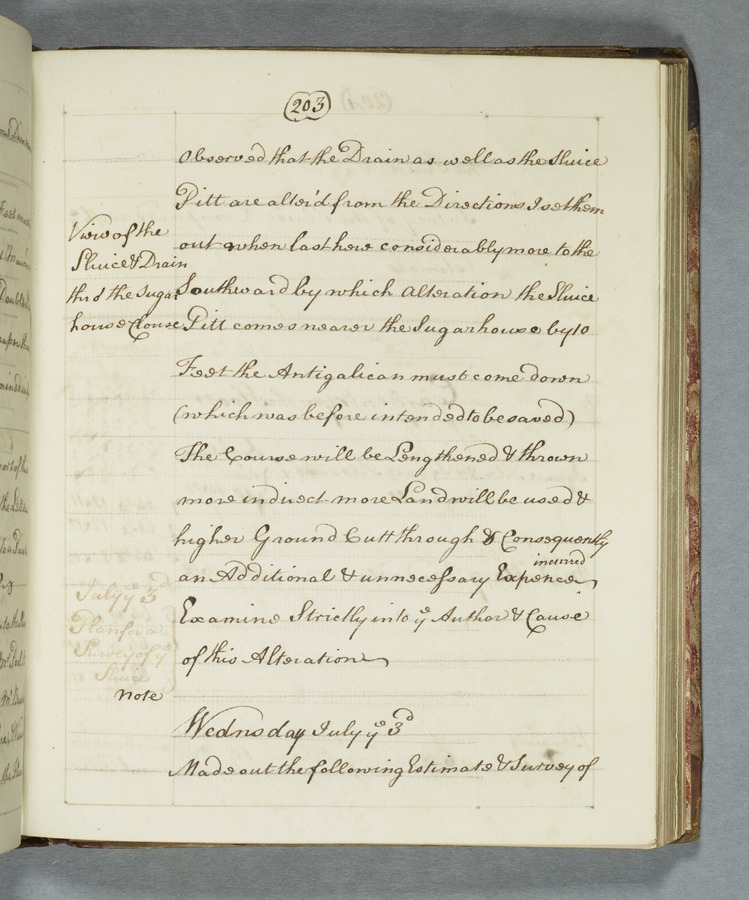 203
observed that the Drain as well as the Sluice
Pitt are alter'd from the Directions I set them
out when last here considerably more to the
Southward by which Alteration the Sluice
Pitt comes nearer the Sugarhouse by 10
Feet the Antigalican must come down
(which was before intended to be saved)
The Course will be Lengthened & thrown
more indirect more Land will be used &
higher Ground Cutt through & Consequently
incurred
an Additional & unnecessary Expence
Examine Strictly into ye Author & Cause
of this Alteration
Wednsday July ye 3d
Made out the following Estimate & Survey of
View of the
Sluice & Drain
thrd the Sugar
house Clouse
July ye 3d
Plan for a
Survey of ye
Sluice
note